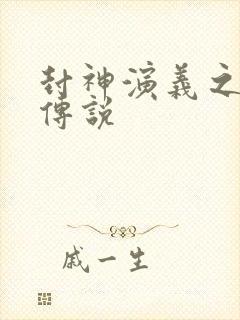 封神演義之
傳說
戚一生